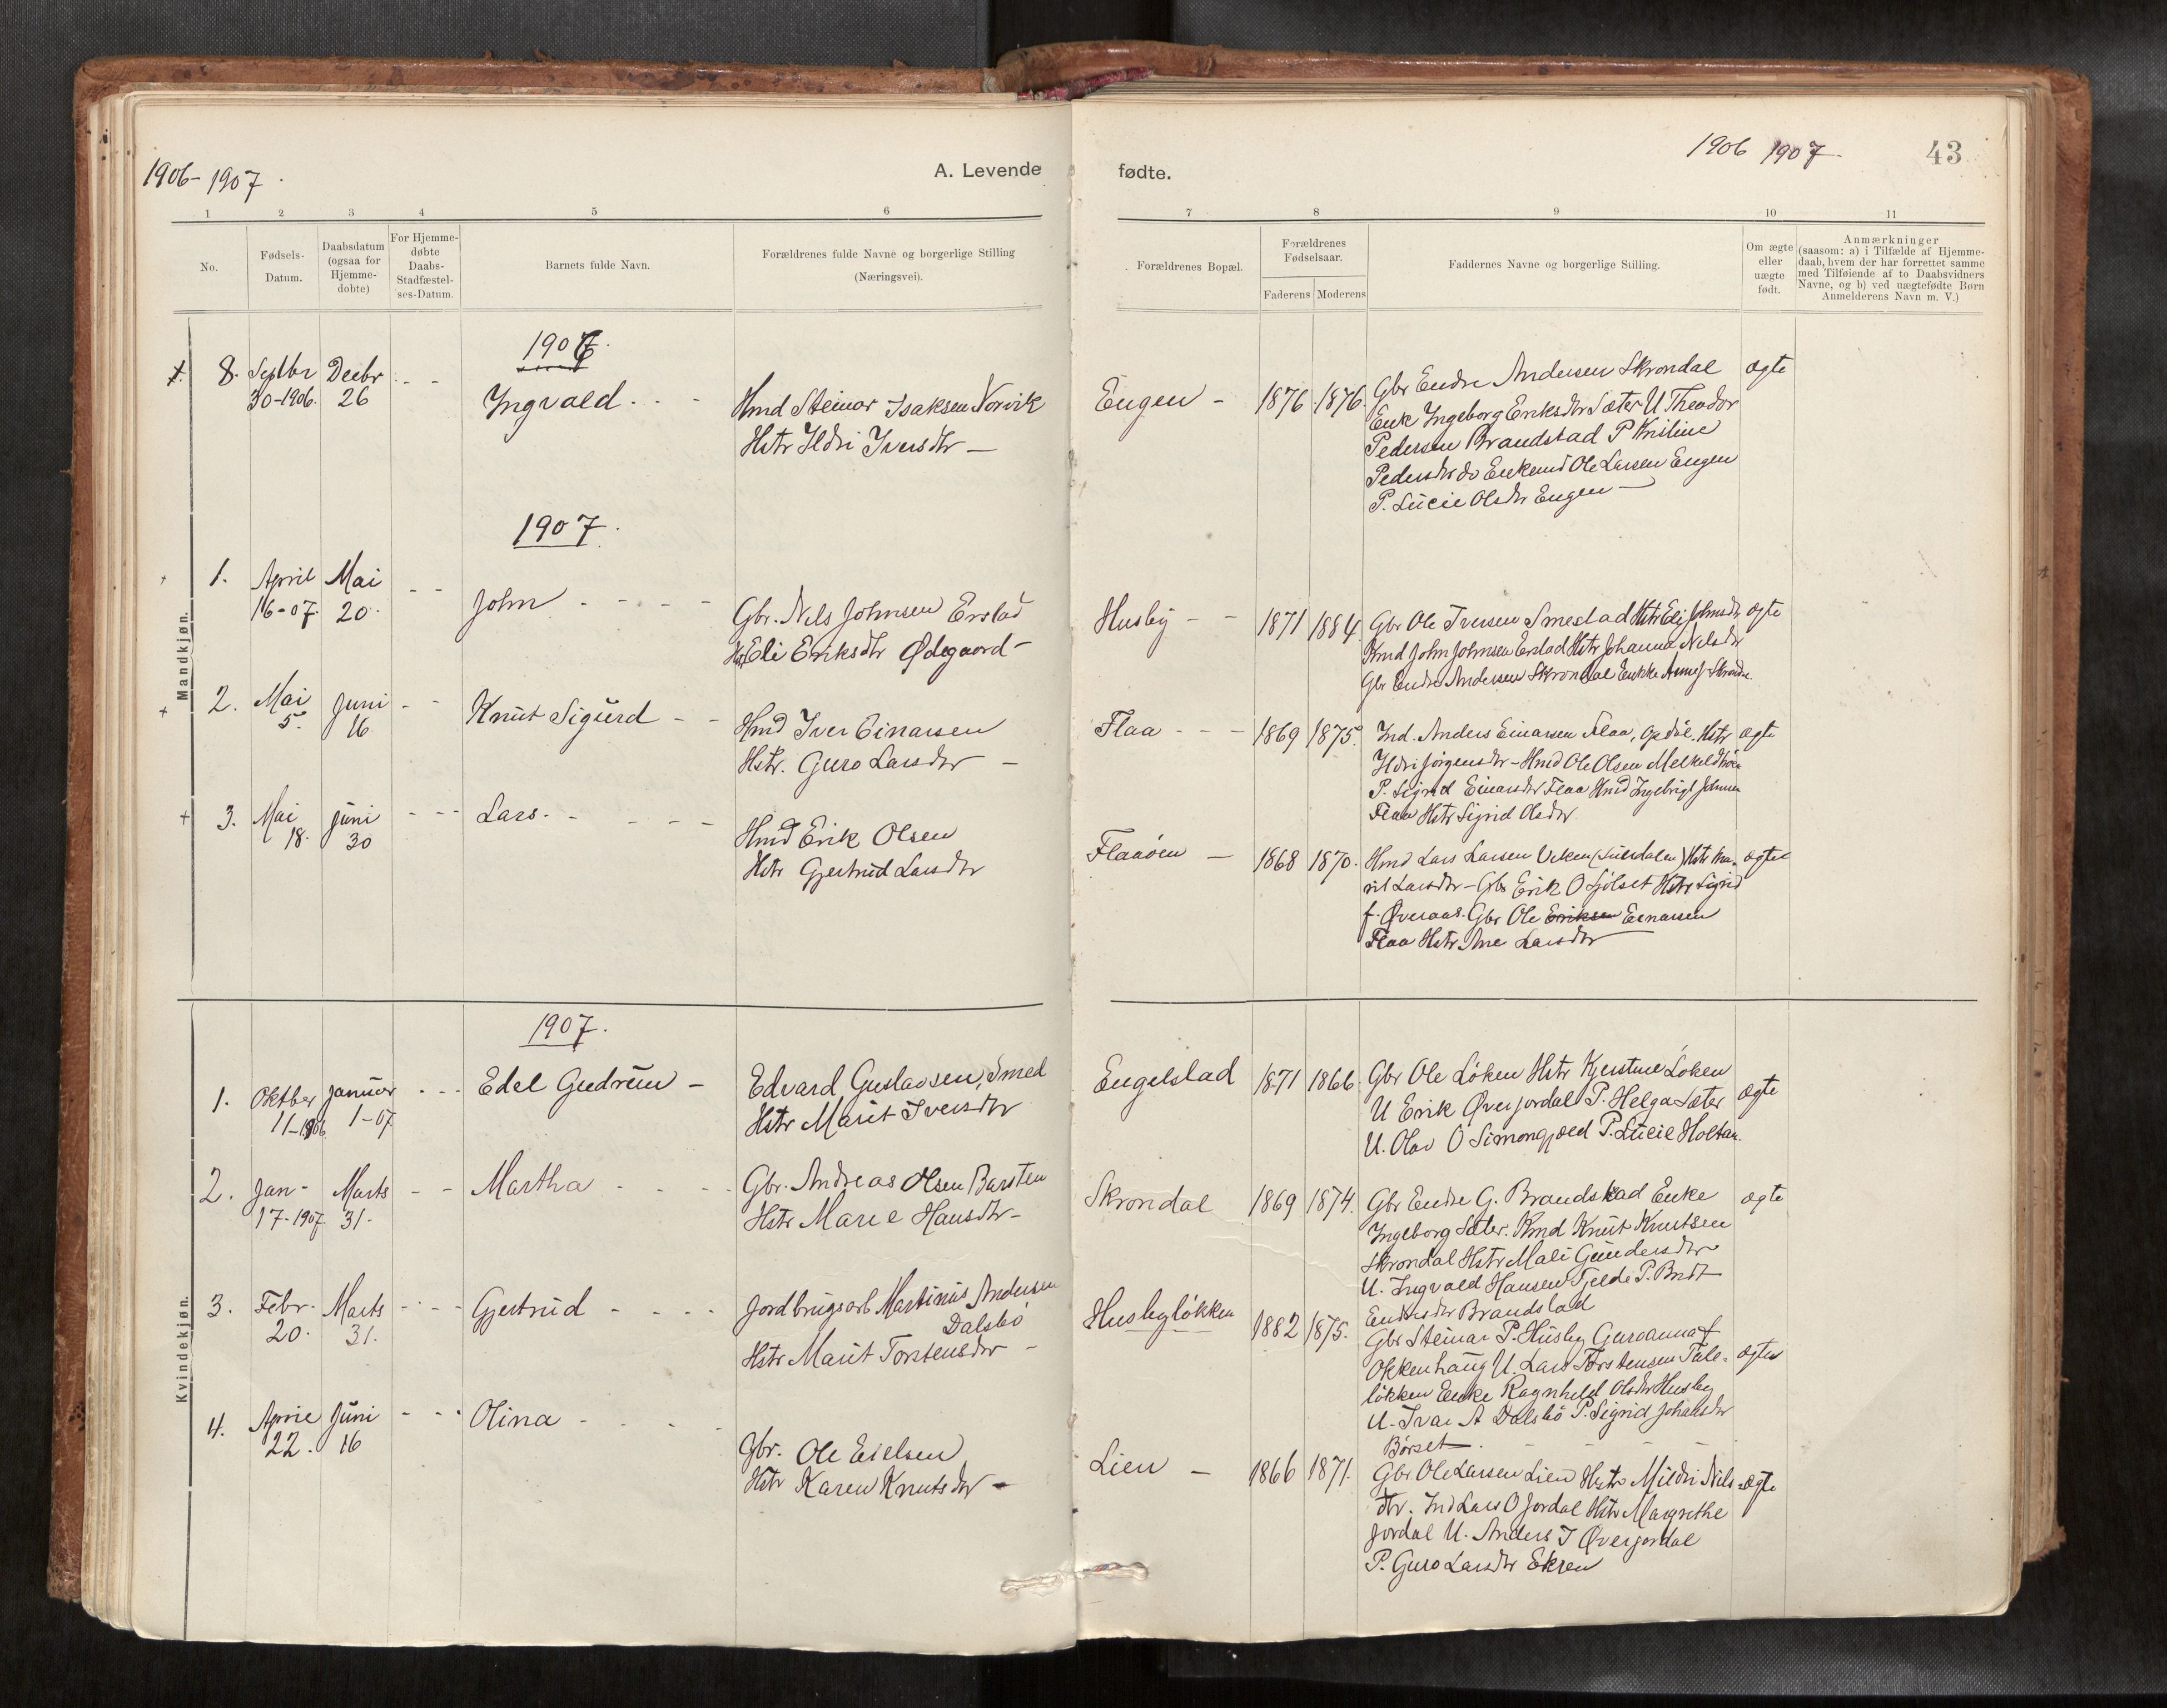 1906-1907.
A. Levende
1 2 3 4 5 6
No.
Fødsels-
Datum.
Daabsdatum
(ogsaa for
Hjemme-
døbte)
For Hjemme-
døbte
Daabs-
Stadfæstel-
ses-Datum.
Barnets fulde Navn.
Forældrenes fulde Navne og borgerlige Stilling
(Næringsvei).
Mandkjøn.
1906.
8. Septbr Decbr - -
30-1906. 26
Ingvald - -
Hmd Steinar Isaksen Norvik
Hstr Ildri Iversdtr -
1907.
1. April Mai - -
16-07. 20.
John - - - -
Gbr. Nils Johnsen Erstad
Hstr Eli Eriksdtr Ødegaard -
2. Mai Juni - -
5. 16
Knut Sigurd - -
Hmd Iver Einarsen
Hstr. Guro Larsdtr -
3. Mai Juni - - -
18. 30
Lars - - - - -
Hmd Erik Olsen
Hstr Gjertrud Larsdtr
Kvindekjøn.
1907.
1. Oktber Januar - - -
11-1906 1-07
Edel Gudrun -
Edvard Gustavsen, Smed
Hstr Marit Iversdtr
2. Jan- Marts - -
17-1907 31.
Martha - - - -
Gbr. Andreas Olsen Barsten
Hstr Marie Hansdtr -
3. Febr. Marts - - -
20. 31.
Gjertrud - - - -
Jordbrugsarb Martinus Andersen
Dalsbø
Hstr Marit Torstensdtr -
4. April Juni - - -
22. 16
Olina - - - -
Gbr. Ole Eielsen
Hstr Karen Knutsdtr -
1906 1907.
43
fødte.
7 8 9 10 11
Forældrenes Bopæl.
Forældrenes
Fødselsaar.
Faderens Moderens
Faddernes Navne og borgerlige Stilling.
Om ægte
eller
uægte
født.
Anmærkninger
(saasom: a) i Tilfælde af Hjemme-
daab, hvem der har forrettet samme
med Tilføiende af to Daabsvidners
Navne, og b) ved uægtefødte Børn
Anmelderens Navn m. V.)
Engen - 1876 1876.
Gbr Endre Andersen Skrondal ægte
Enk Ingeborg Eriksdtr Sæter U Theodor
Pedersen Brandstad P Kristine
Pedersdtr do Enkemd Ole Larsen Engen
P. Lucie Olsdtr Engen -
Husby - - 1871 1884
Gbr Ole Iversen Smestad Hstr Eli Johnsdtr ægte
Kmd John Johnsen Erstad Hstr Johanna Nilsdtr
Gbr Endre Andersen Skrondal Enkke Anne J. Skrondal
Flaa - - - 1869 1875.
Ind. Anders Einarsen Flaa, Opdøl. Hstr ægte
Ildri Jørgensdtr - Hmd Ole Olsen
P. Sigrid Einarsdtr Flaa Hmd Ingebrigt Johnsen
Flaa Hstr Sigrid Olsdtr
Flaaøien - 1868 1870.
Hmd Lars Larsen Viken Hstr Ma- ægte
rit Larsdtr - Gbr Erik O Sjølset Hstr Sigrid
f. Øveraas. Gbr Ole Eriksen Einarsen
Flaa Hstr Ane Larsdtr
Engelstad 1871 1866
Gbr Ole Løken Hstr Kjerstine Løken
U Erik Øverjordal P. Helga Sæter ægte
U. Olav O Simongjæld P. Lucie Holtan.
Skrondal 1869 1874.
Gbr Endre G. Brandstad Enke ægte
Ingeborg Sæter. Kmd Knut Knutsen
Skrondal Hstr Mali Gundersdtr
U. Ingvald Hansen Fjelde P. Brit
Endresdtr Brandstad
Husbyløkken 1882 1875.
Gbr Steinar P. Husby Guroanna f
Okkenhaug U. Lars Torstensen Tale- ægte
løkken Enke Ragnhild Olsdtr Husby
U. Ivar A Dalsbø P. Sigrid Johansdtr
Børset - .
Lien - 1866 1871.
Gbr Ole Larsen Lien Hstr Mildri Nils- ægte
dtr. Ind Lars O Jordal Hstr Margrethe
Jordal U. Anders I Øverjordal
P. Guro Larsdtr Ekren